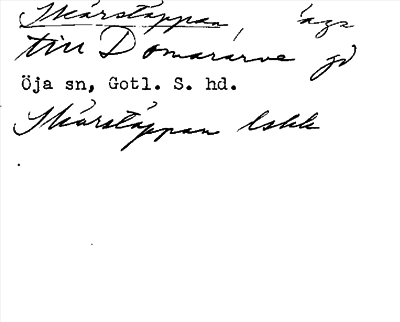 Skårstäppan, ägs
till Domarårve gd
Öja sn, Gotl. S. hd.
Skårstäppan lskk